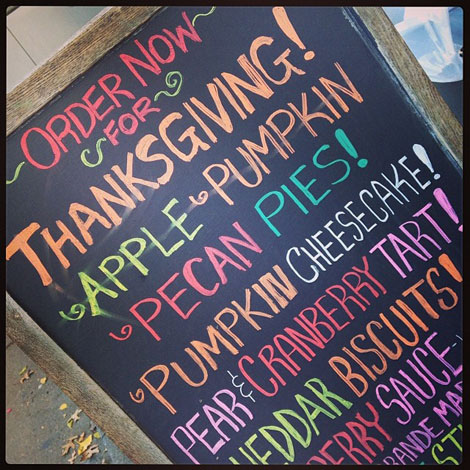 ORDER NOW
FOR
THANKSGIVING!
APPLE PUMPKIN
PECAN PIES!
PUMPKIN CHEESECAKE!
PEAR & CRANBERRY TART!
HEDDAR BISCUITS!
ERRY SAUCE
RANDE MA